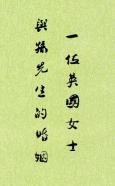 一位英國女士
與孫先生的婚姻